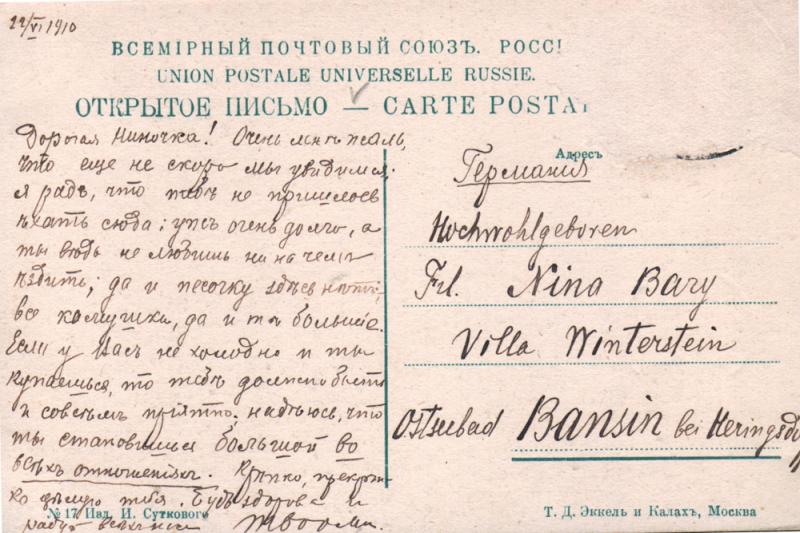 22/VI 1910
ВСЕМІРНЫЙ ПОЧТОВЫЙ СОЮЗЪ. РОССІ
UNION POSTALE UNIVERSELLE RUSSIE.
ОТКРЫТОЕ ПИСЬМО — CARTE POSTA
Дорогая Ниночка! Очень мнѣ жаль,
что еще не скоро мы увидимся.
я радъ, что тебѣ не пришлось
ѣхать сюда; ужъ очень долго, а
ты вѣдь не любишь ни на чемъ
ѣздить; да и песочку здѣсь нѣтъ;
все камушки, да и то большіе.
Если у Васъ не холодно и ты
купаешься, то тебѣ должно быть
и совсѣмъ пріятно. надѣюсь, что
ты становишься большой во
всѣхъ отношеніяхъ. Крѣпко, прекрѣп-
ко цѣлую тебя. Будь здорова и
Адресъ
Германия
Hochwohlgeboren
Frl. Nina Bary
Villa Winterstein
Ostseebad Bansin bei Heringsdo
№ 17 Изд. И. Суткового
Т. Д. Эккель и Калахъ, Москва